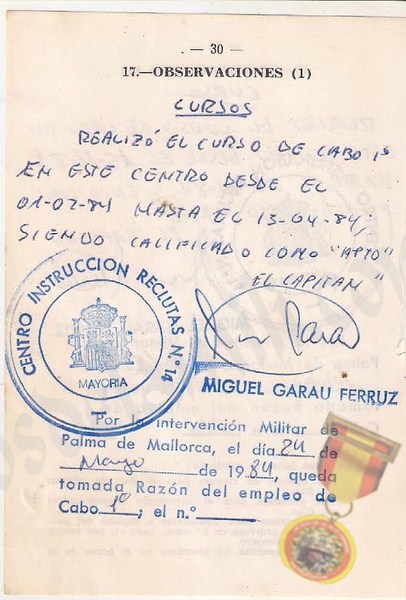 . — 30 —
17.—OBSERVACIONES (1)
CURSOS
REALIZÓ EL CURSO DE CABO 1º
EN ESTE CENTRO DESDE EL
01-02-84 HASTA EL 13-04-84;
SIENDO CALIFICADO COMO "APTO"
EL CAPITAN"
CENTRO INSTRUCCION RECLUTAS N.º 14
MAYORIA
MIGUEL GARAU FERRUZ
Por la Intervención Militar de
Palma de Mallorca, el día 24 de
Mayo de 1984, queda
tomada Razón del empleo de
Cabo 1º; el n.º